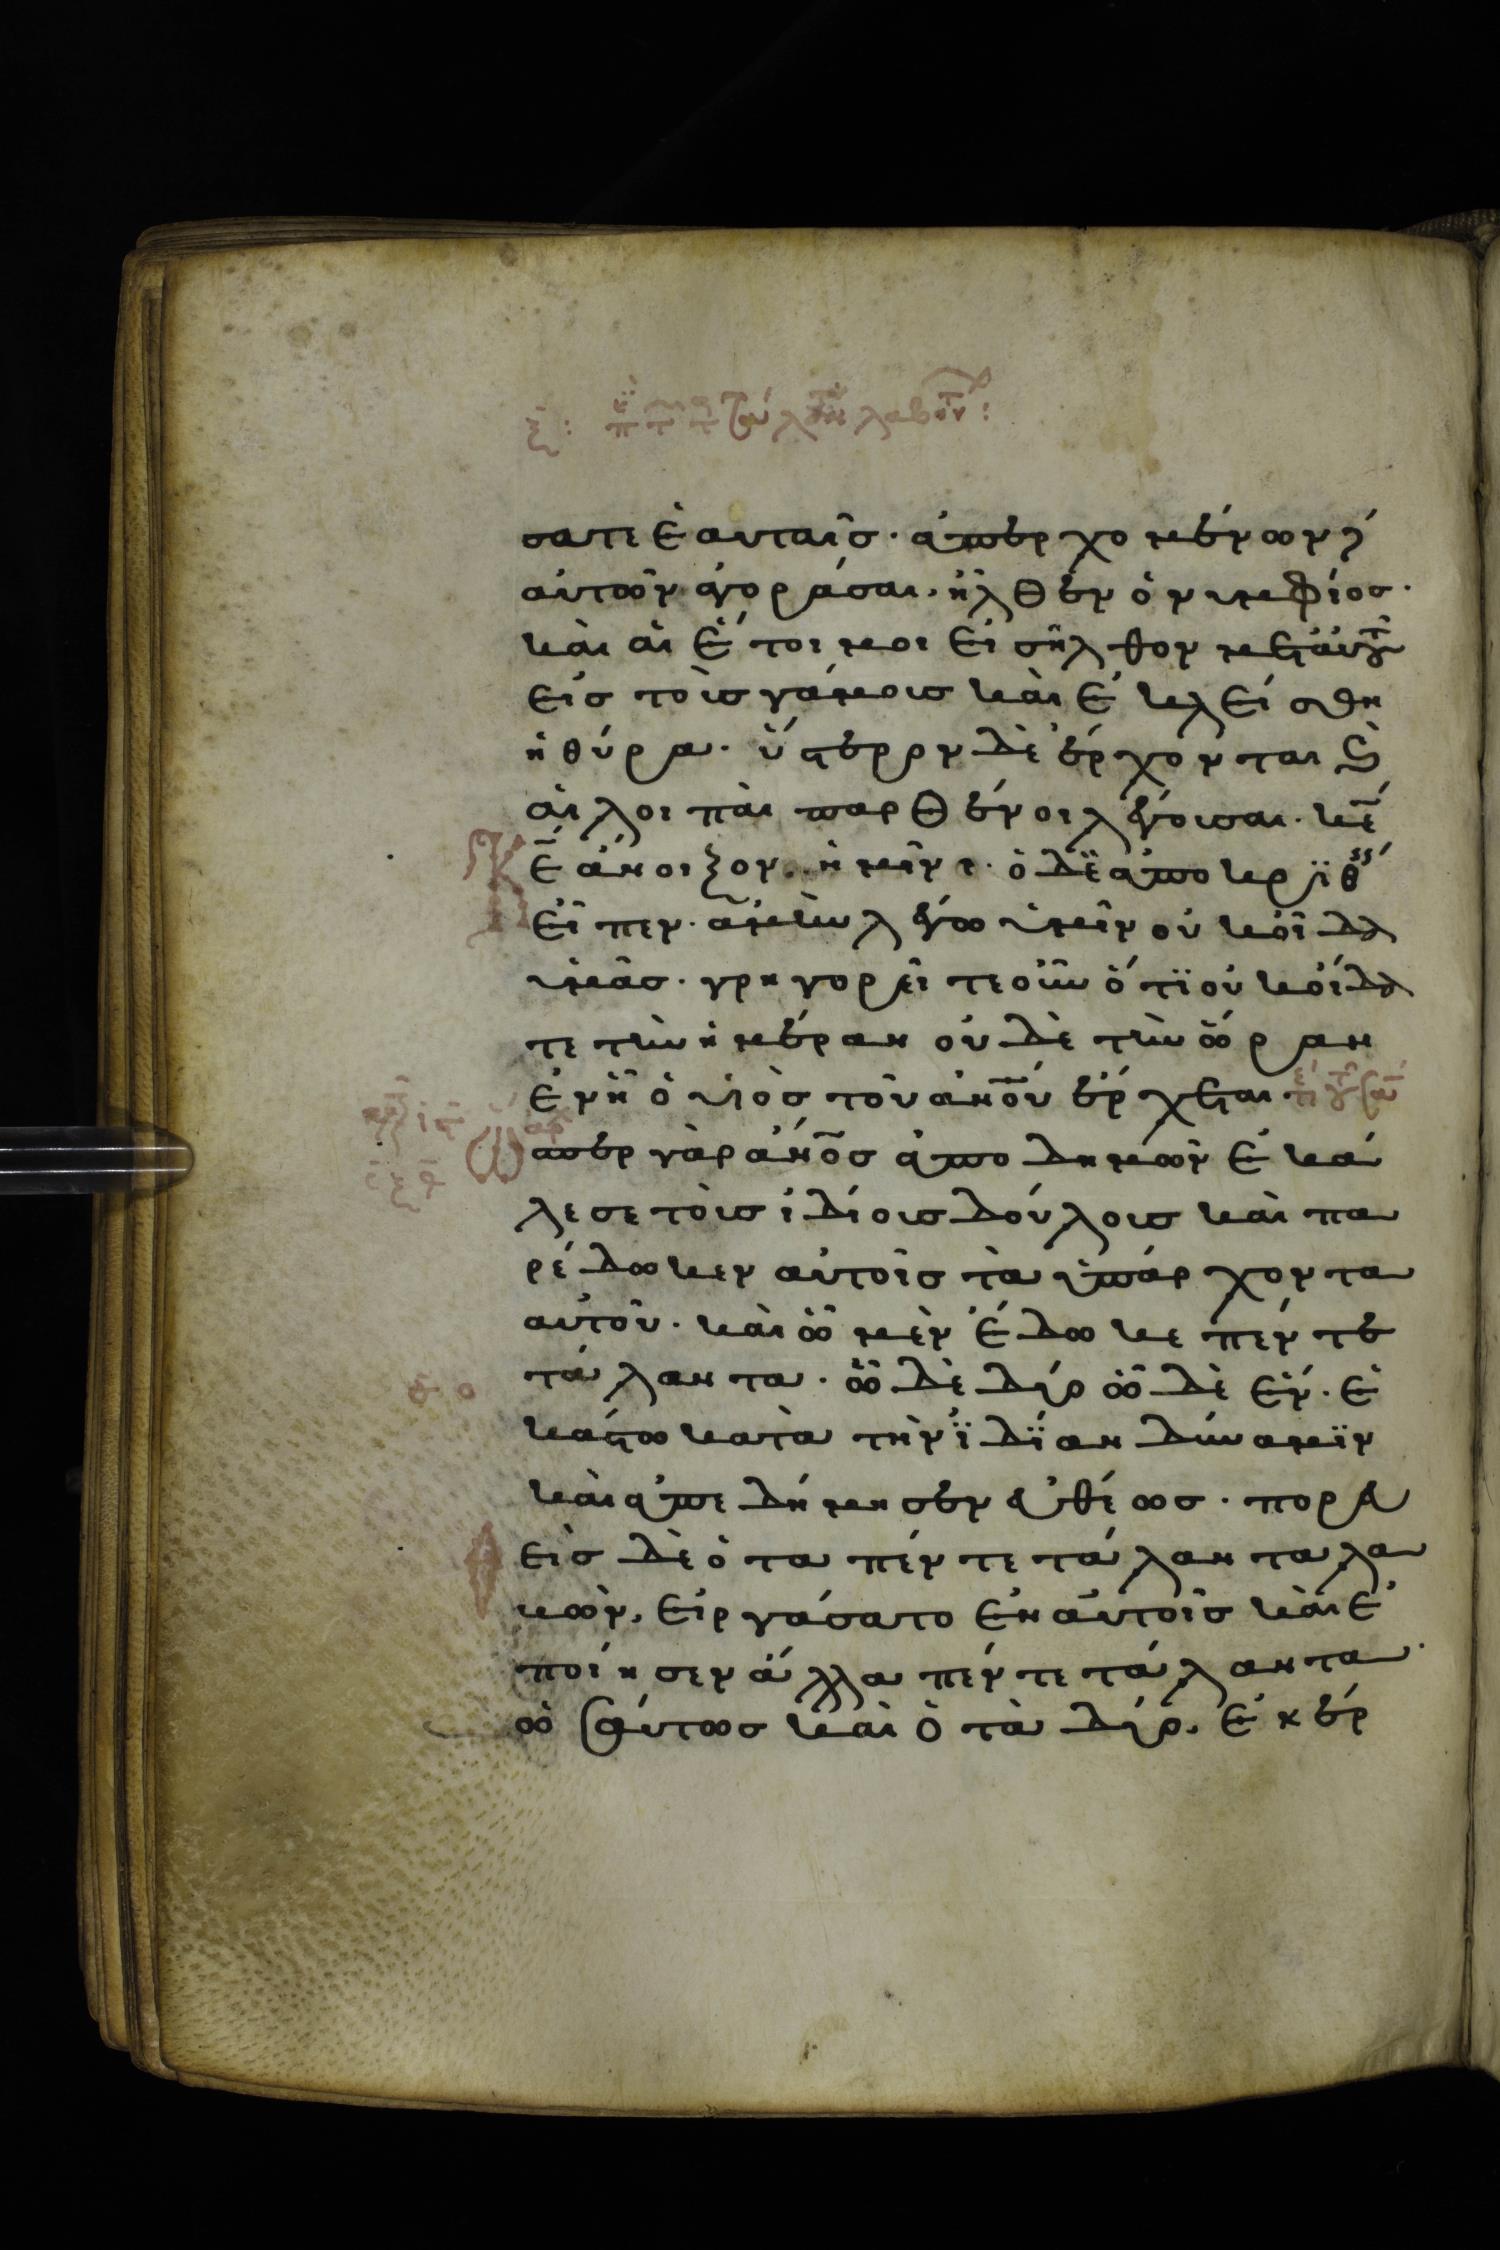 σατε ἑαυταῖς· ἀπερχομένων δ
αὐτῶν ἀγοράσαι, ἦλθεν ὁ νυμφίος·
καὶ αἱ ἕτοιμοι εἰσῆλθον μετ αὐτ
εἰς τοὺς γάμους καὶ ἐκλείσθη
ἡ θύρα· ὕστερον δὲ ἔρχονται ϗ
αἱ λοιπαὶ παρθένοι λέγουσαι· κε
κε ἄνοιξον ἡμῖν· ὁ δὲ ἀποκριθ
εἶπεν· ἀμὴν λέγω ὑμῖν οὐκ οἶδα
ὑμᾶς· γρηγορεῖτε οὖν ὅτι οὐκ οἴδα
τε τὴν ἡμέραν οὐδὲ τὴν ὥραν
ἐν ἧ ὁ υἱὸς τοῦ ανου ἔρχεται
Ὥσπερ γὰρ ανος ἀποδημῶν ἐκά
λεσε τοὺς ἰδίους δούλους καὶ πα
ρέδωκεν αὐτοῖς τὰ ὑπάρχοντα
αὐτοῦ· καὶ ὧ μὲν ἔδωκε πέντε
τάλαντα· ὧ δὲ δύο ὧ δὲ ἕν· ἑ
κάστω κατὰ τὴν ἰδίαν δύναμιν
καὶ ἀπεδήμησεν εὐθέως· πορευ
θεὶς δὲ ὁ τα πέντε τάλαντα λα
βὼν, εἰργάσατο ἐν αὐτοῖς καὶ ἐ
ποίησεν ἄλλα πέντε τάλαντα·
ὡσαύτως καὶ ὁ τὰ δύο, ἐκέρ